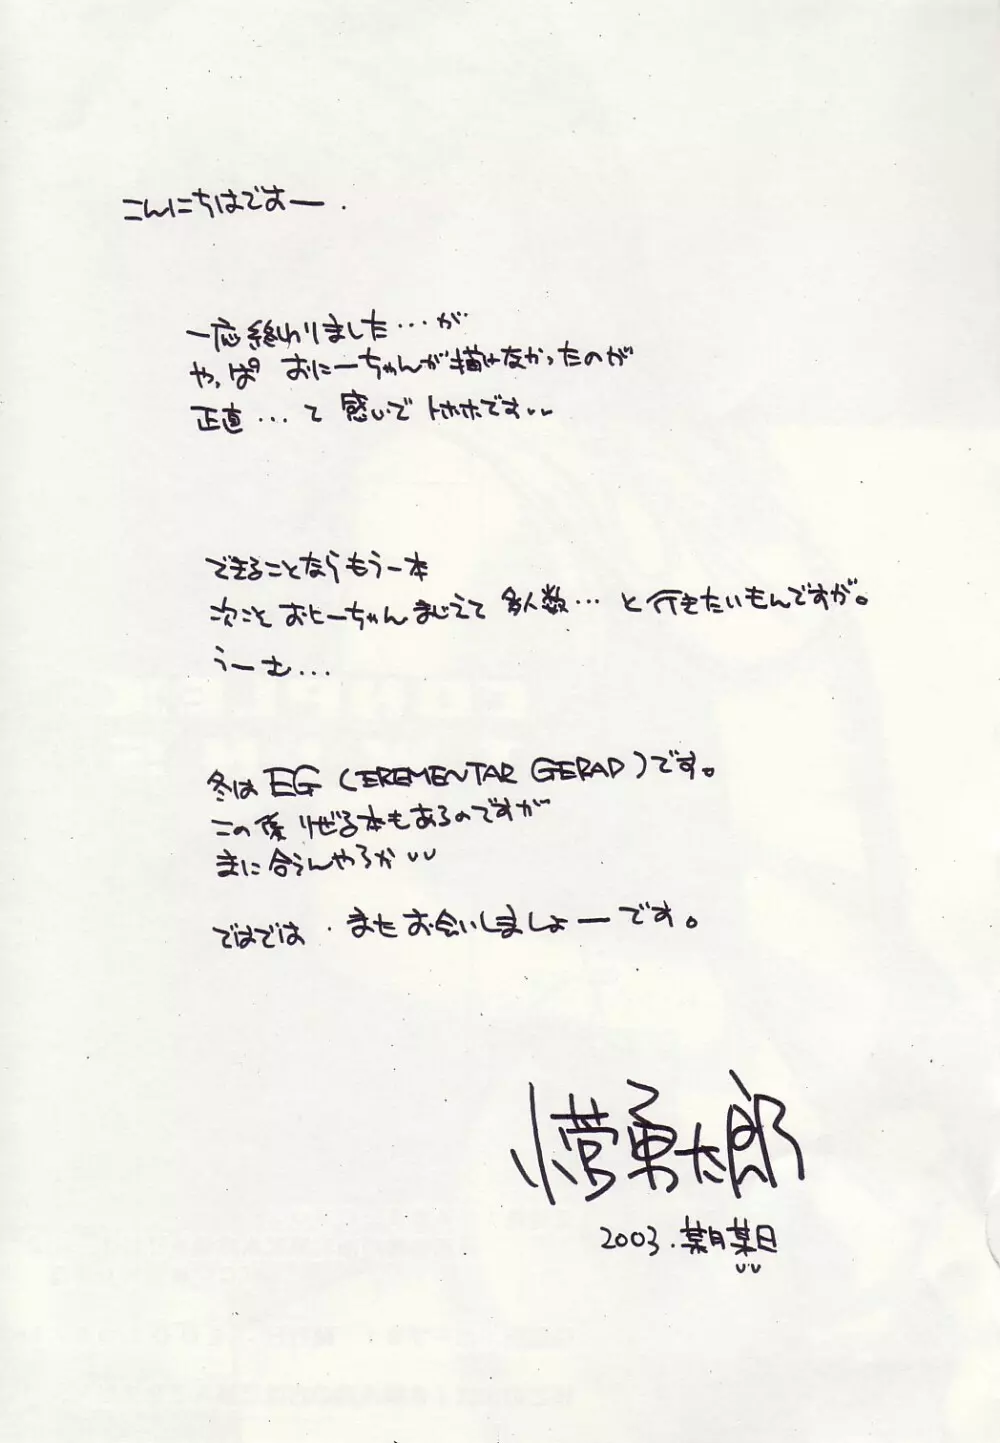 こんにちはですー.
一応終わりました…が
やっぱ おにーちゃんが描けなかったのが
正直…て感じで トホホですvv
できることならもう一本
次こそ おにーちゃんまじえて 多人数…と行きたいもんですが。
うーむ…
冬は EG (EREMENTAR GERAD)です。
この係 りぜる本もあるのですが
まに合うんやろか vv
ではでは．またお会いしましょーです。
小菅勇太郎
2003.某月某日
vv
COMPLEX